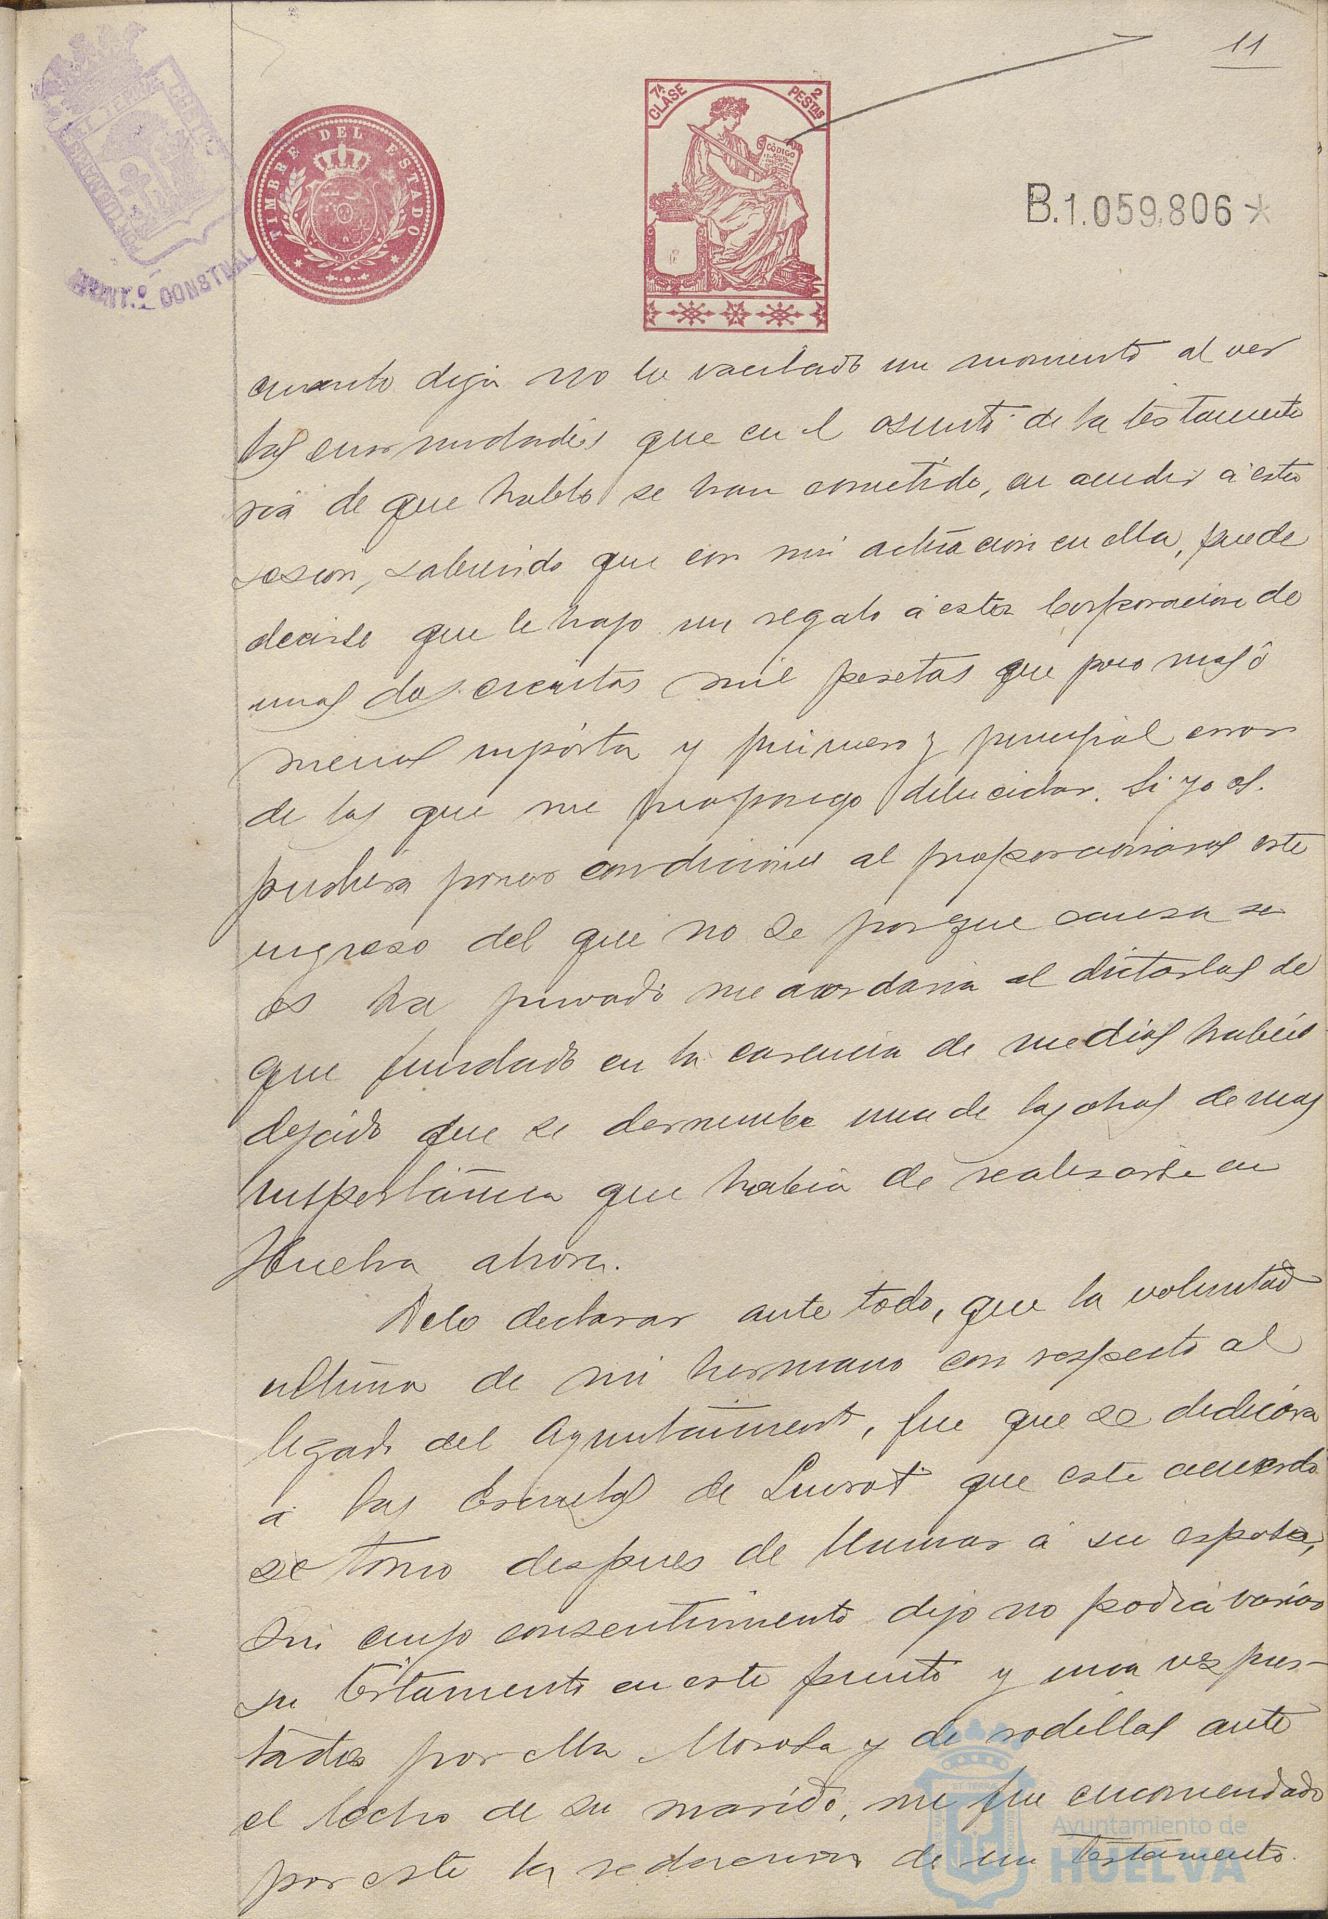 11
7ª CLASE
2 PESTAS
CÓDIGO
TIMBRE DEL ESTADO
AYUNT.º CONSTNAL
B.1.059,806*
cuanto deja no he vacilado un momento al ver
las enormidades que en el asunto de la testamenta
ria de que hablo se han cometido, en acudir á esta
sesion, sabiendo que con mi actuacion en ella, puede
decirse que le hago un regalo á esta Corporacion de
unas doscientas mil pesetas que poco mas ó
menos importa y primero y principal error
de los que me propongo delucidar. Si yo os
pudiera poner condiciones al proporcionaros este
ingreso del que no se porque causa se
os ha privado me acordaria al dictarlas de
que fundado en la carencia de medios habeis
dejado que se derrumbe una de las obras de mas
importancia que habia de realisarse en
Huelva ahora.
Debo declarar ante todo, que la voluntad
ultima de mi hermano con respecto al
legado del Ayuntamiento, fue que se dedicara
á las Escuelas de Siurot que este acuerdo
se tomo despues de llamar á su esposa,
sin cuyo consentimiento dijo no podia variar
su testamento en este punto y una vez pres-
tado por ella llorosa y de rodillas ante
el lecho de su marido, me fue encomendado
por este la redaccion de un testamento.
Ayuntamiento de
HUELVA